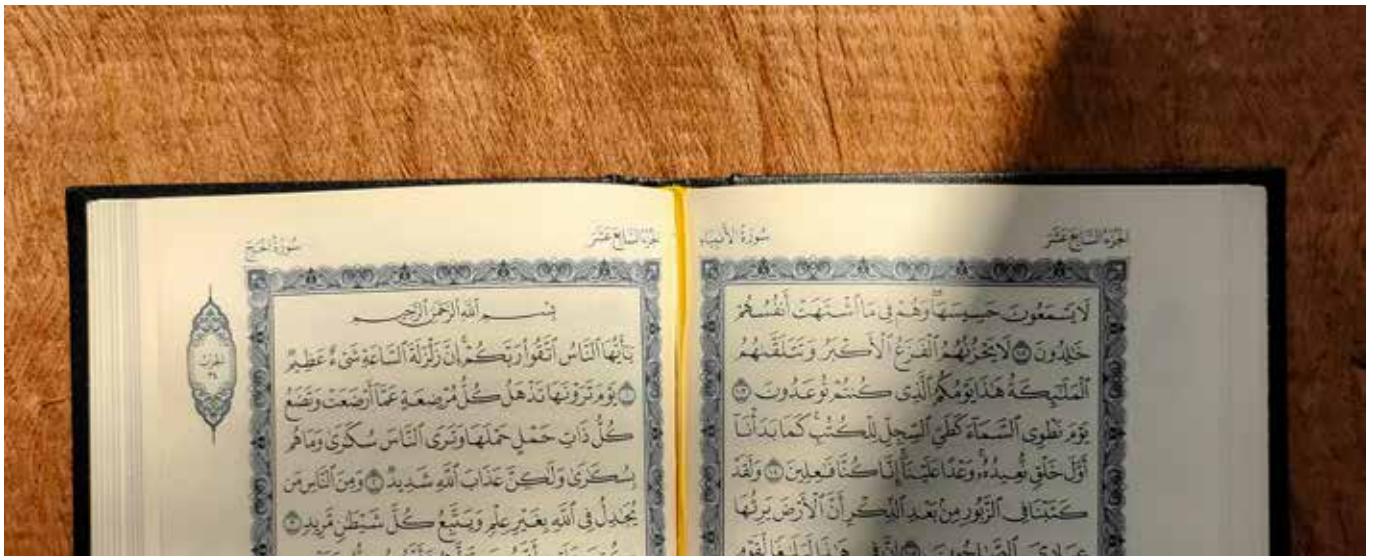 الجزء السابع عشر
سورة الأنبياء
لَا يَسْمَعُونَ حَسِيسَهَا ۖ وَهُمْ فِي مَا ٱشْتَهَتْ أَنفُسُهُمْ
خَٰلِدُونَ ١٠٢ لَا يَحْزُنُهُمُ ٱلْفَزَعُ ٱلْأَكْبَرُ وَتَتَلَقَّىٰهُمُ
ٱلْمَلَٰٓئِكَةُ هَٰذَا يَوْمُكُمُ ٱلَّذِي كُنتُمْ تُوعَدُونَ ١٠٣
يَوْمَ نَطْوِي ٱلسَّمَآءَ كَطَيِّ ٱلسِّجِلِّ لِلْكُتُبِ ۚ كَمَا بَدَأْنَآ
أَوَّلَ خَلْقٍ نُّعِيدُهُۥ ۚ وَعْدًا عَلَيْنَآ ۚ إِنَّا كُنَّا فَٰعِلِينَ ١٠٤ وَلَقَدْ
كَتَبْنَا فِي ٱلزَّبُورِ مِنۢ بَعْدِ ٱلذِّكْرِ أَنَّ ٱلْأَرْضَ يَرِثُهَا
عِبَادِيَ ٱلصَّٰلِحُونَ ١٠٥ إِنَّ فِي هَٰذَا لَبَلَٰغًا لِّقَوْمٍ
الجزء السابع عشر
سورة الحج
بِسْمِ ٱللَّهِ ٱلرَّحْمَٰنِ ٱلرَّحِيمِ
يَٰٓأَيُّهَا ٱلنَّاسُ ٱتَّقُوا۟ رَبَّكُمْ ۚ إِنَّ زَلْزَلَةَ ٱلسَّاعَةِ شَيْءٌ عَظِيمٌ
١ يَوْمَ تَرَوْنَهَا تَذْهَلُ كُلُّ مُرْضِعَةٍ عَمَّآ أَرْضَعَتْ وَتَضَعُ
كُلُّ ذَاتِ حَمْلٍ حَمْلَهَا وَتَرَى ٱلنَّاسَ سُكَٰرَىٰ وَمَا هُم
بِسُكَٰرَىٰ وَلَٰكِنَّ عَذَابَ ٱللَّهِ شَدِيدٌ ٢ وَمِنَ ٱلنَّاسِ مَن
يُجَٰدِلُ فِي ٱللَّهِ بِغَيْرِ عِلْمٍ وَيَتَّبِعُ كُلَّ شَيْطَٰنٍ مَّرِيدٍ ٣
الحزب
٣٤